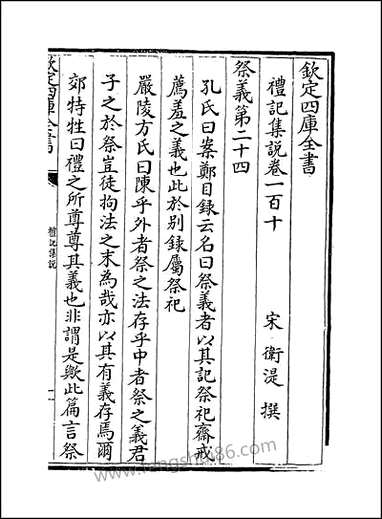 欽定四庫全書
禮記集說卷一百十
宋 衛湜 撰
祭義第二十四
孔氏曰案鄭目録云名曰祭義者以其記祭祀齋戒
薦羞之義也此於别録屬祭祀
嚴陵方氏曰陳乎外者祭之法存乎中者祭之義君
子之於祭豈徒拘法之末為哉亦以其有義存焉爾
郊特牲曰禮之所尊尊其義也非謂是歟此篇言祭
欽定四庫全書
禮記集說